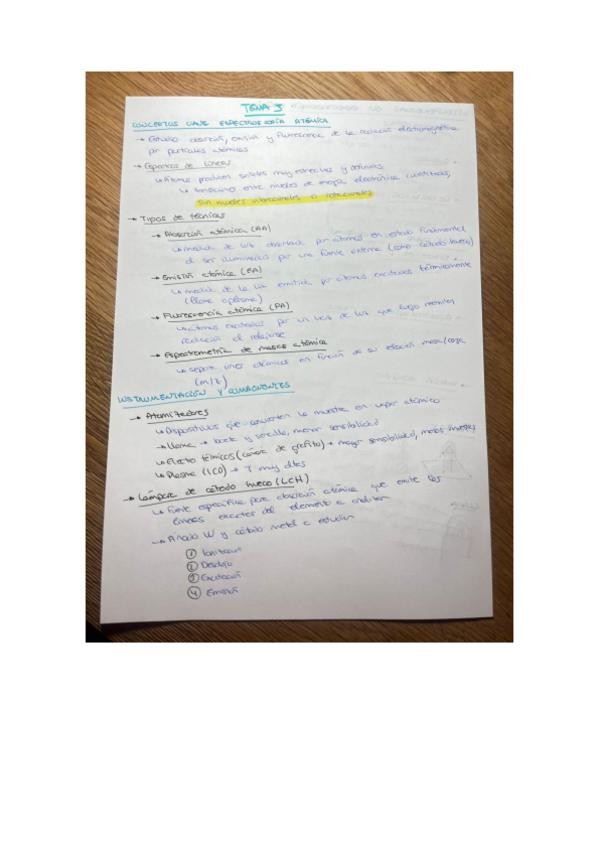 TEMA 5
CONCEPTOS CLAVE ESPECTROSCOPÍA ATÓMICA
→ Estudio absorción, emisión y fluorescencia de la radiación electromagnética
por partículas atómicas
→ Espectros de líneas
↳ Átomos producen señales muy estrechas y definidas
↳ transiciones entre niveles de energía electrónica cuantizados,
sin niveles vibracionales o rotacionales
→ Tipos de técnicas
→ Absorción atómica (AA)
↳ medida de luz absorbida por átomos en estado fundamental
al ser iluminados por una fuente externa (como cátodo hueco)
→ Emisión atómica (EA)
↳ medida de la luz emitida por átomos excitados térmicamente
(llama o plasma)
→ Fluorescencia atómica (FA)
↳ átomos excitados por un haz de luz que luego reemiten
radiación al relajarse
→ Espectrometría de masas atómica
↳ separa iones atómicos en función de su relación masa/carga
(m/z)
INSTRUMENTACIÓN Y COMPONENTES
→ Atomizadores
↳ Dispositivos que convierten la muestra en vapor atómico
↳ Llama → barata y sencilla, menor sensibilidad
↳ Electrotérmicos (cámara de grafito) → mayor sensibilidad, menos muestra
↳ Plasma (ICP) → T muy altas
→ Lámpara de cátodo hueco (LCH)
↳ Fuente específica para absorción atómica que emite las
líneas exactas del elemento a analizar
→ Ánodo W y cátodo metal a estudiar
① Ionización
② Desalojo
③ Excitación
④ Emisión